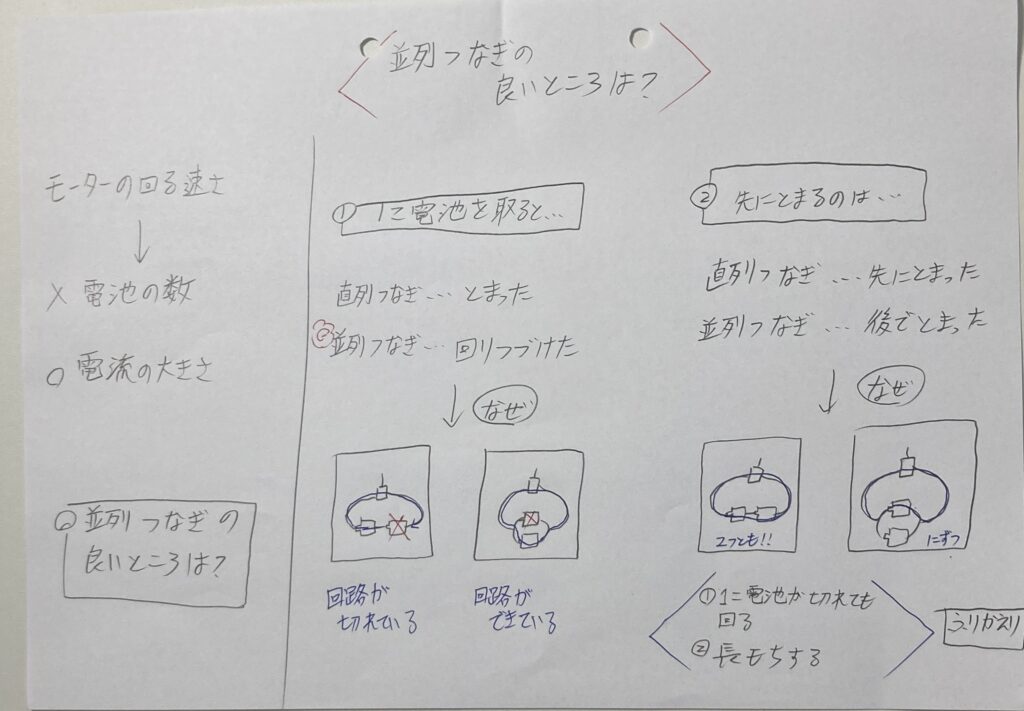 並列つなぎの
良いところは？
モーターの回る速さ
↓
× 電池の数
○ 電流の大きさ
○並列つなぎの
良いところは？
① 1こ電池を取ると…
直列つなぎ… とまった
並列つなぎ… 回りつづけた
↓ なぜ
回路が
切れている
回路が
できている
② 先にとまるのは…
直列つなぎ… 先にとまった
並列つなぎ… 後でとまった
↓ なぜ
2つとも!!
1こずつ
①1こ電池が切れても
回る
②長もちする
ふりかえり